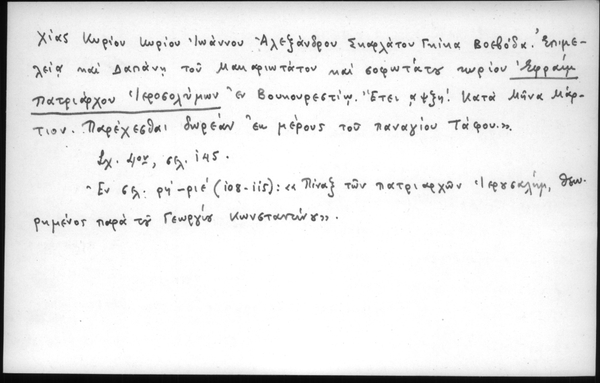 χίας Κυρίου κυρίου Ἰωάννου Ἀλεξάνδρου Σκαρλάτου Γκίκα Βοεβόδα. Ἐπιμε-
λείᾳ καὶ Δαπάνῃ τοῦ Μακαριωτάτου καὶ σοφωτάτου κυρίου Ἐφραὶμ
πατριάρχου Ἱεροσολύμων Ἐν Βουκουρεστίῳ. Ἔτει ͵αψξη΄. Κατὰ Μῆνα Μάρ-
τιον. Παρέχεσθαι δωρεὰν ἐκ μέρους τοῦ παναγίου Τάφου».
Σχ. 4ον, σελ. 145.
Ἐν σελ. ρή-ριέ (108-115): «Πίναξ τῶν πατριαρχῶν Ἱερουσαλήμ, θεω-
ρημένος παρὰ τοῦ Γεωργίου Κωνσταντίνου».